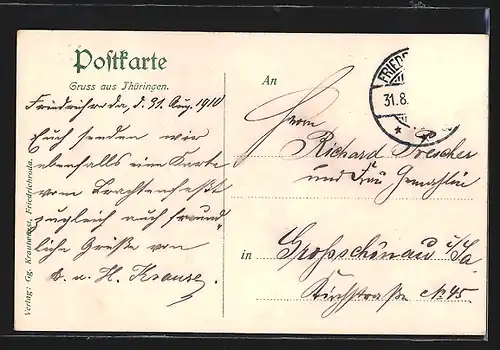 Postkarte
Gruss aus Thüringen.
Friedrichroda, d. 31. Aug. 1910
Euch senden wir
ebenfalls eine Karte
vom Trachtenfest
zugleich auch freund-
liche Grüße von
u. H. Krause.
Verlag: Gg. Friedrichroda.
An
Herrn
Richard Drescher
und Frau Gemahlin
in Großschönau i/Sa
Kirchstraße No 45.
FRIED
31.8.